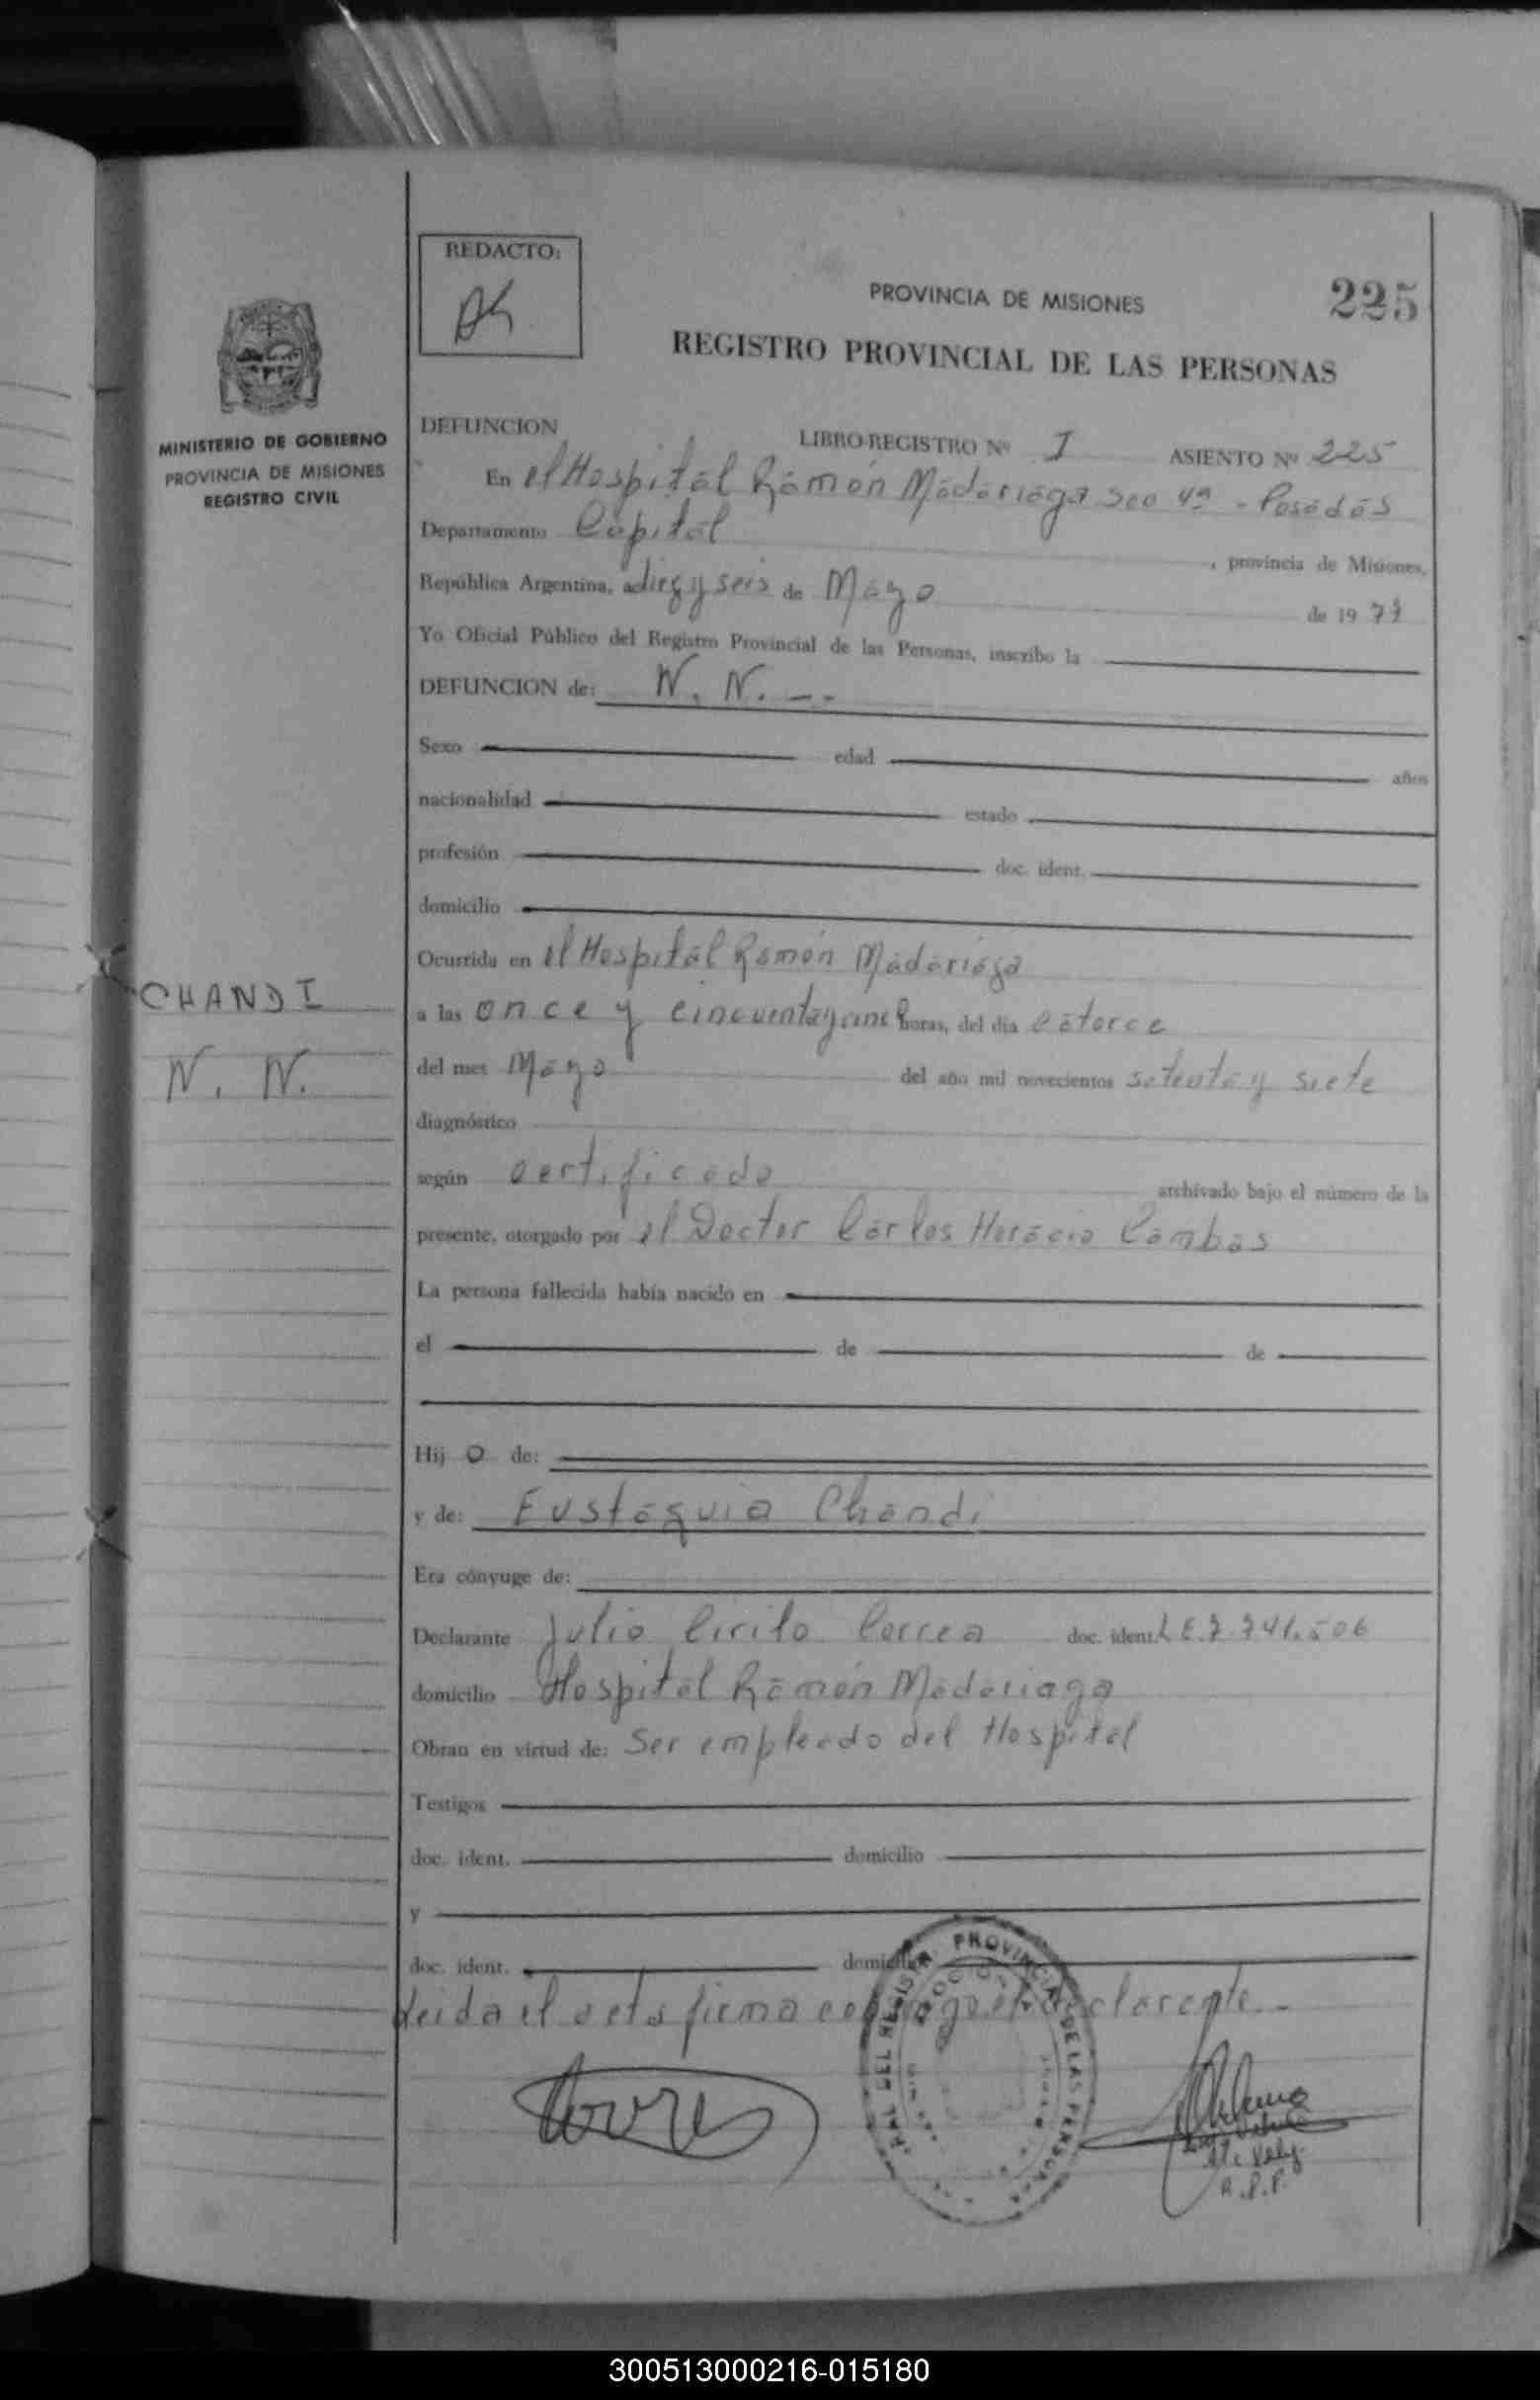 REDACTO:
PROVINCIA DE MISIONES
225
REGISTRO PROVINCIAL DE LAS PERSONAS
MINISTERIO DE GOBIERNO
PROVINCIA DE MISIONES
REGISTRO CIVIL
DEFUNCION LIBRO-REGISTRO Nº I ASIENTO Nº 225
En el Hospital Ramón Madariaga Sec 4ª - Posadas
Departamento Capital , provincia de Misiones,
República Argentina, a diez y seis de Mayo de 1977
Yo Oficial Público del Registro Provincial de las Personas, inscribo la
DEFUNCION de: N. N. --
Sexo edad años
nacionalidad estado
profesión doc. ident.
domicilio
Ocurrida en el Hospital Ramón Madariaga
CHANDI
a las once y cincuenta y cinc horas, del día catorce
N. N.
del mes Mayo del año mil novecientos setenta y siete
diagnóstico
según certificado archivado bajo el número de la
presente, otorgado por el Doctor Carlos Horacio Cambas
La persona fallecida había nacido en
el de de
Hij o de:
y de: Eustaquia Chandi
Era cónyuge de:
Declarante Julio Cirilo Correa doc. ident. L E. 7.741.506
domicilio Hospital Ramón Madariaga
Obran en virtud de: Ser empleado del Hospital
Testigos
doc. ident. domicilio
y
doc. ident. domicilio
Leida el acta firma conmigo el declarante.-
PROVINCIAL DE LAS PERSONAS
R.P.P.
300513000216-015180